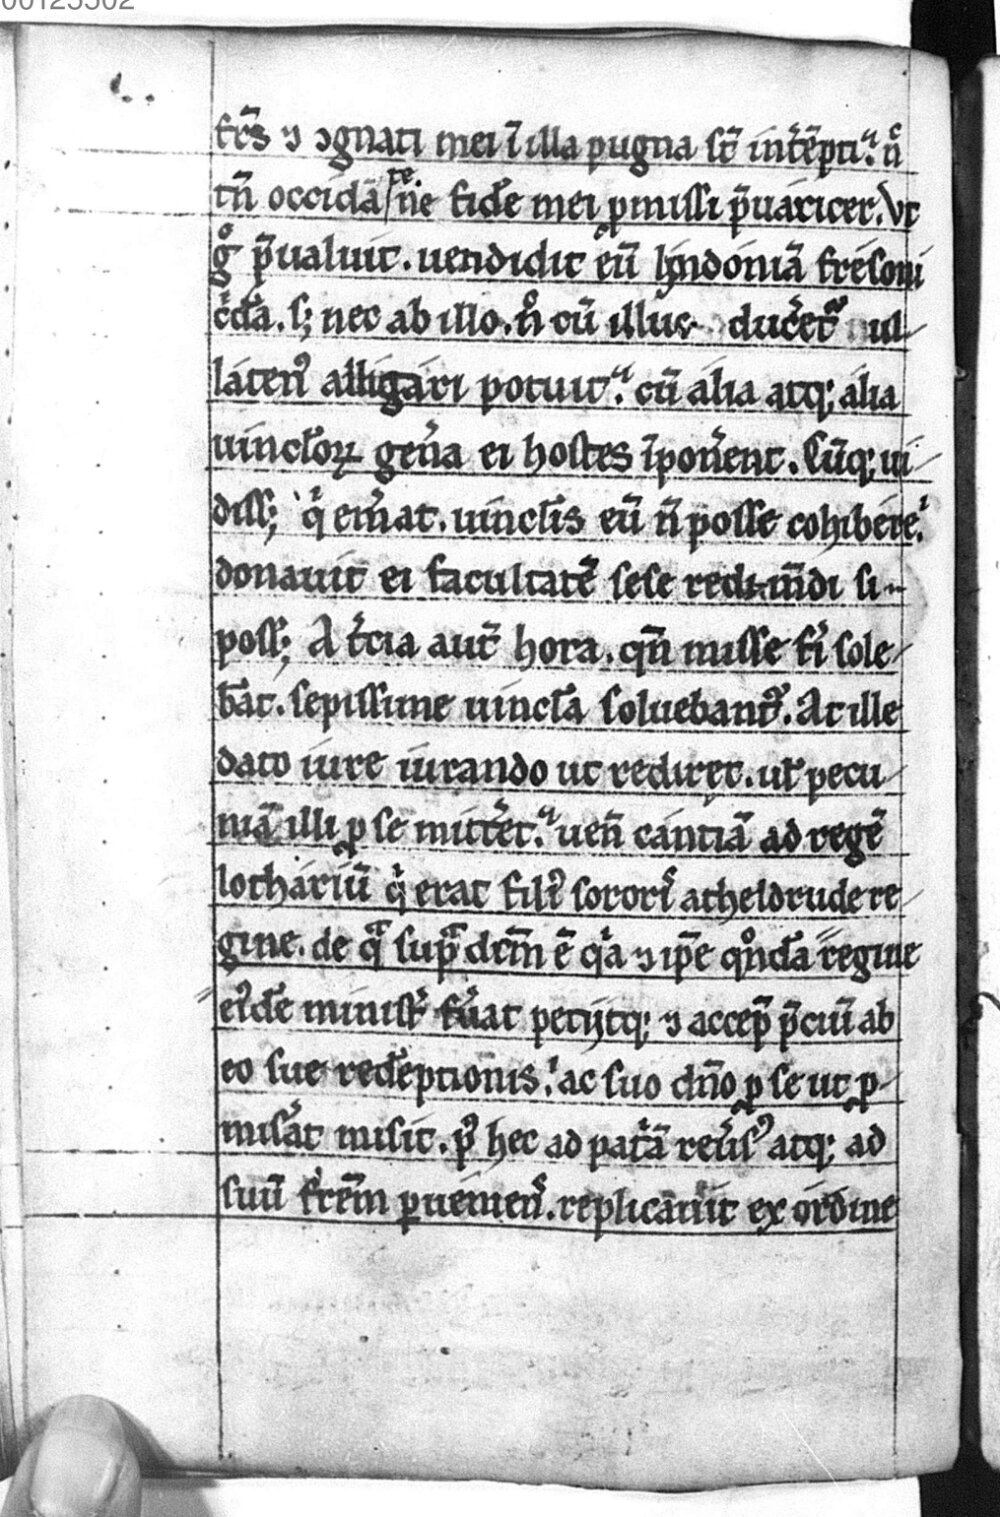 00125502
fr̄s ⁊ ꝯgnati mei ī illa pugna st̄ int̄ēpti. n̄c
tn̄ occidā te ne fidē mei ꝓmissi p̄uaricer. Vt
gͦ p̄ualuit. uendidit eū lyndoniā fresoni
cͥdā. sꝫ nec ab illo. nͦ cū illuc duceret̉ ul
laten᷒ alligari potuit. cū alia atqꝫ alia
uincloꝝ gen̉a ei hostes īpon̉ent. Cūqꝫ ui
dissꝫ qͥ em̉at. uincl̄is eū n̄ posse cohibere.
donauit ei facultatē sese redim̄di si
possꝫ A t̉cia aut̄ hora. qn̄ misse fỉ sole
bāt. sepissime uincl̄a soluebant᷑. At ille
dato iure iurando ut rediret. ul̄ pecu
niā illi ꝓ se mitt̉et. uen̄ cantiā ad regē
lothariū qͥ erat fili᷒ soror̄ atheldrude re
gine. de qᵃ supᵃ dc̄m ē qͥa ⁊ ip̄e qͦndā regine
ei᷒dē minist̉ fủat petijtqꝫ ⁊ accep̄ p̄ciū ab
eo sue redēptionis. ac suo dn̄o ꝓ se ut ꝓ
mis̉at misit. p᷒ hec ad pat̉ā reủs᷒ atqꝫ ad
suū fr̄em ꝑueniens. replicauit ex ordine